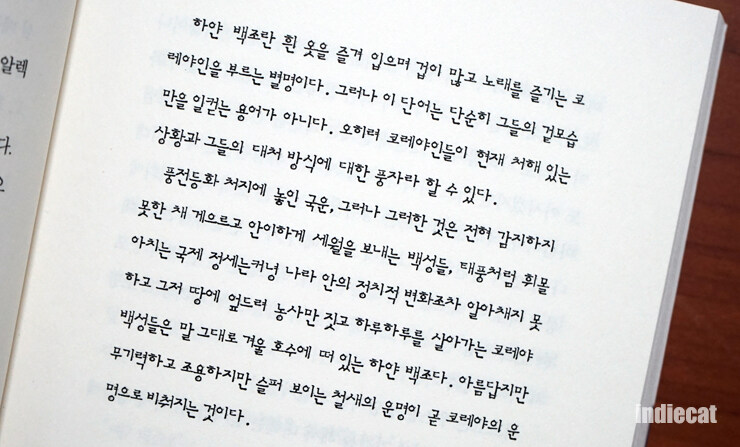 알렉
다.
으
하얀 백조란 흰 옷을 즐겨 입으며 겁이 많고 노래를 즐기는 코
레야인을 부르는 별명이다. 그러나 이 단어는 단순히 그들의 겉모습
만을 일컫는 용어가 아니다. 오히려 코레야인들이 현재 처해 있는
상황과 그들의 대처 방식에 대한 풍자라 할 수 있다.
풍전등화 처지에 놓인 국운, 그러나 그러한 것은 전혀 감지하지
못한 채 게으르고 안이하게 세월을 보내는 백성들, 태풍처럼 휘몰
아치는 국제 정세는커녕 나라 안의 정치적 변화조차 알아채지 못
하고 그저 땅에 엎드려 농사만 짓고 하루하루를 살아가는 코레야
백성들은 말 그대로 겨울 호수에 떠 있는 하얀 백조다. 아름답지만
무기력하고 조용하지만 슬퍼 보이는 철새의 운명이 곧 코레야의 운
명으로 비춰지는 것이다.
indiecat